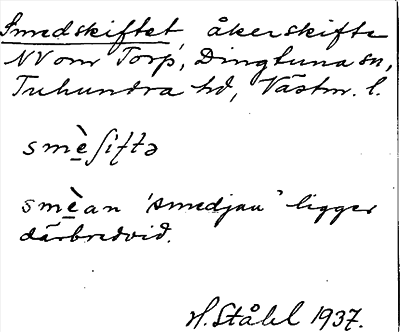 Smedskiftet, åkerskifte
NV om Torp, Dingtuna sn,
Tuhundra hd, Västm. l.
smè̱ʃiftə
smè̱an 'smedjan' ligger
därbredvid.
H. Ståhl 1937.